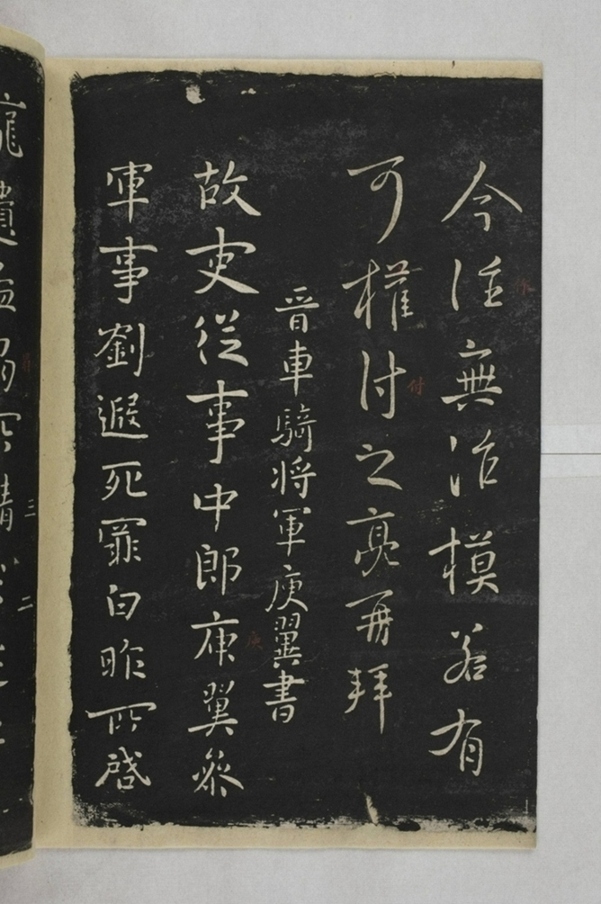 今往無治模若有
可權付之亮再拜
晉車騎将軍庾翼書
故吏從事中郎庾翼叅
軍事劉遐死罪白昨所啓
付
三
二